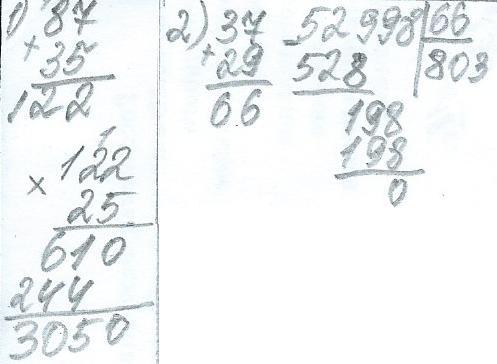 1) 87
+ 35
122
1
× 122
25
610
244
3050
2) 37
+ 29
66
- 52998 | 66
528 | 803
198
198
0